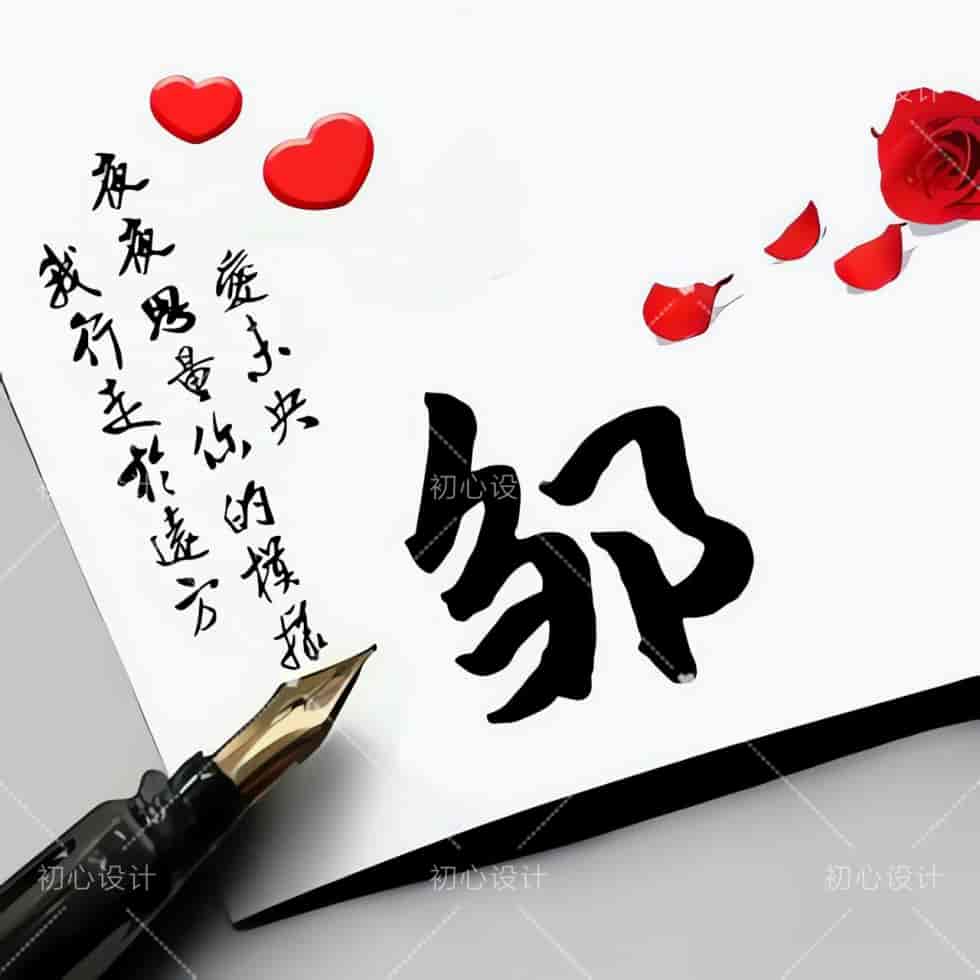 愛未央
夜夜思量你的模樣
我行走於遠方
邹
初心设计
初心设计
初心设计
初心设计